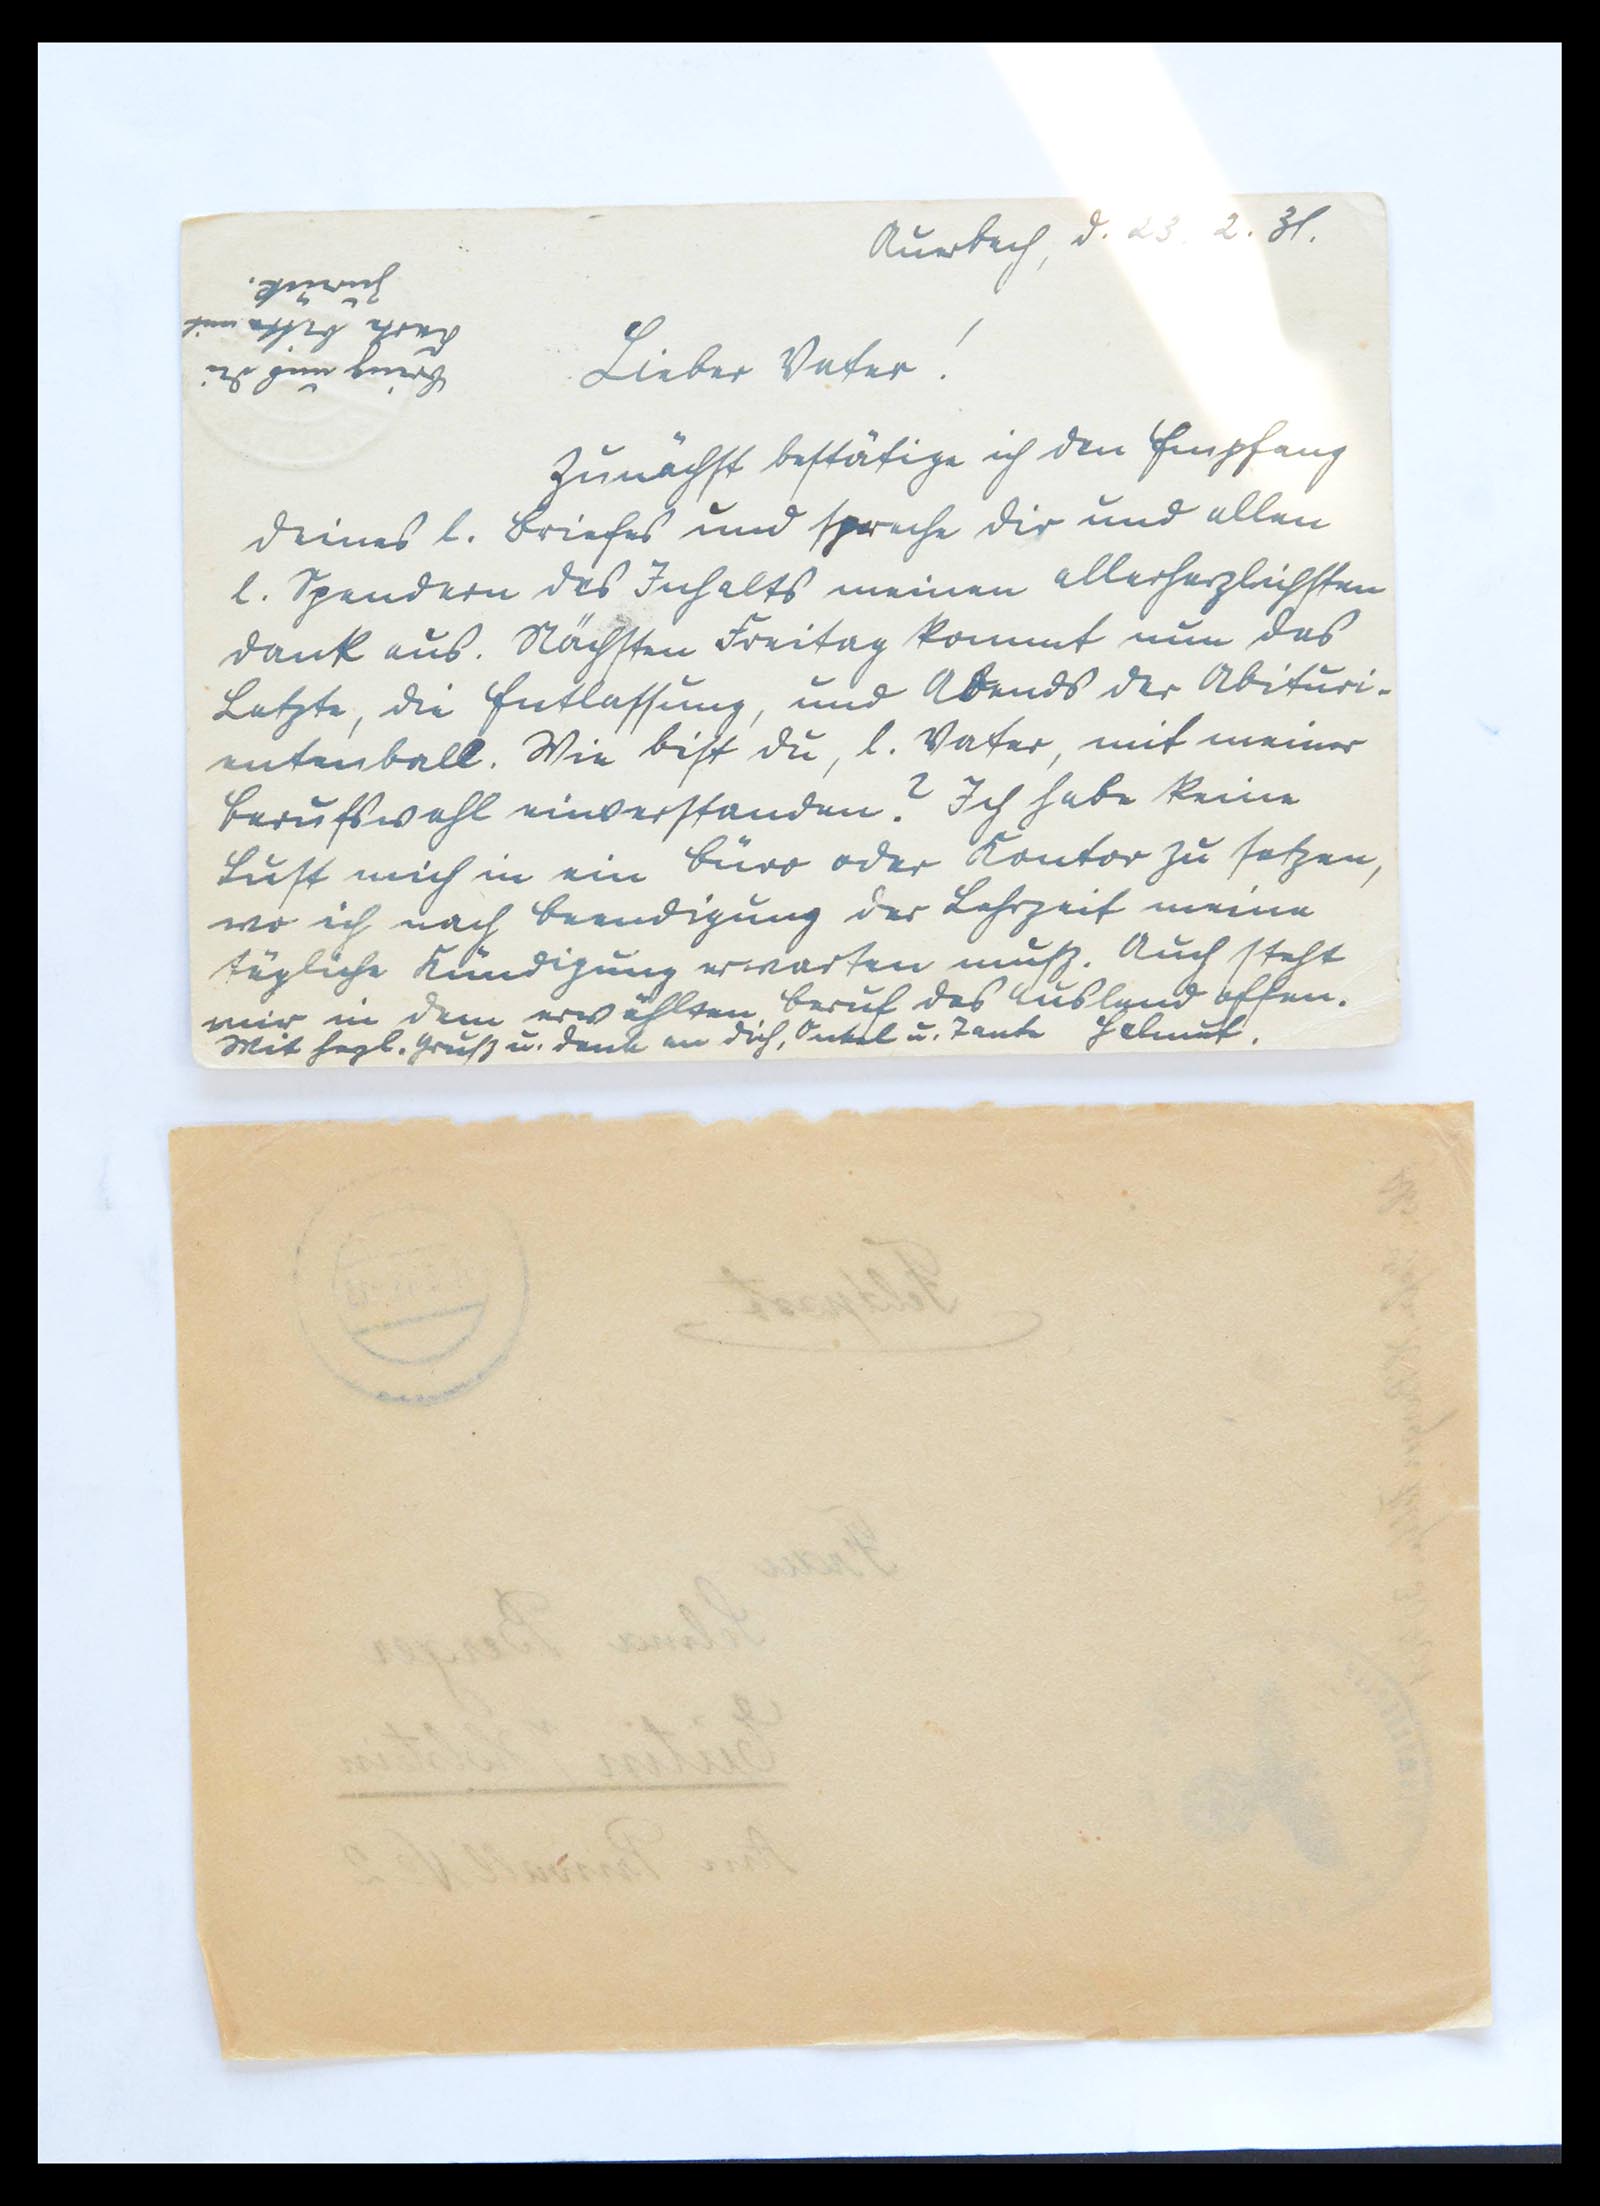 Auerbach, d. 23. 2. 31.
Bring mir die
Karte bitte mit
zurück.
Lieber Vater!
Zunächst bestätige ich den Empfang
deines l. Briefes und spreche dir und allen
l. Spendern des Inhalts meinen allerherzlichsten
Dank aus. Nächsten Freitag kommt nun das
Letzte, die Entlassung, und Abends der Abituri-
entenball. Wie bist du, l. Vater, mit meiner
Berufswahl einverstanden? Ich habe keine
Lust mich in ein Büro oder Kontor zu setzen,
wo ich nach Beendigung der Lehrzeit meine
tägliche Kündigung erwarten muß. Auch steht
mir in dem erwählten Beruf das Ausland offen.
Mit hrzl. Gruß u. Dank an dich, Onkel u. Tante Helmut.
Feldpost
Frau
Selma Berger
Eutin / Holstein
Am N° 2